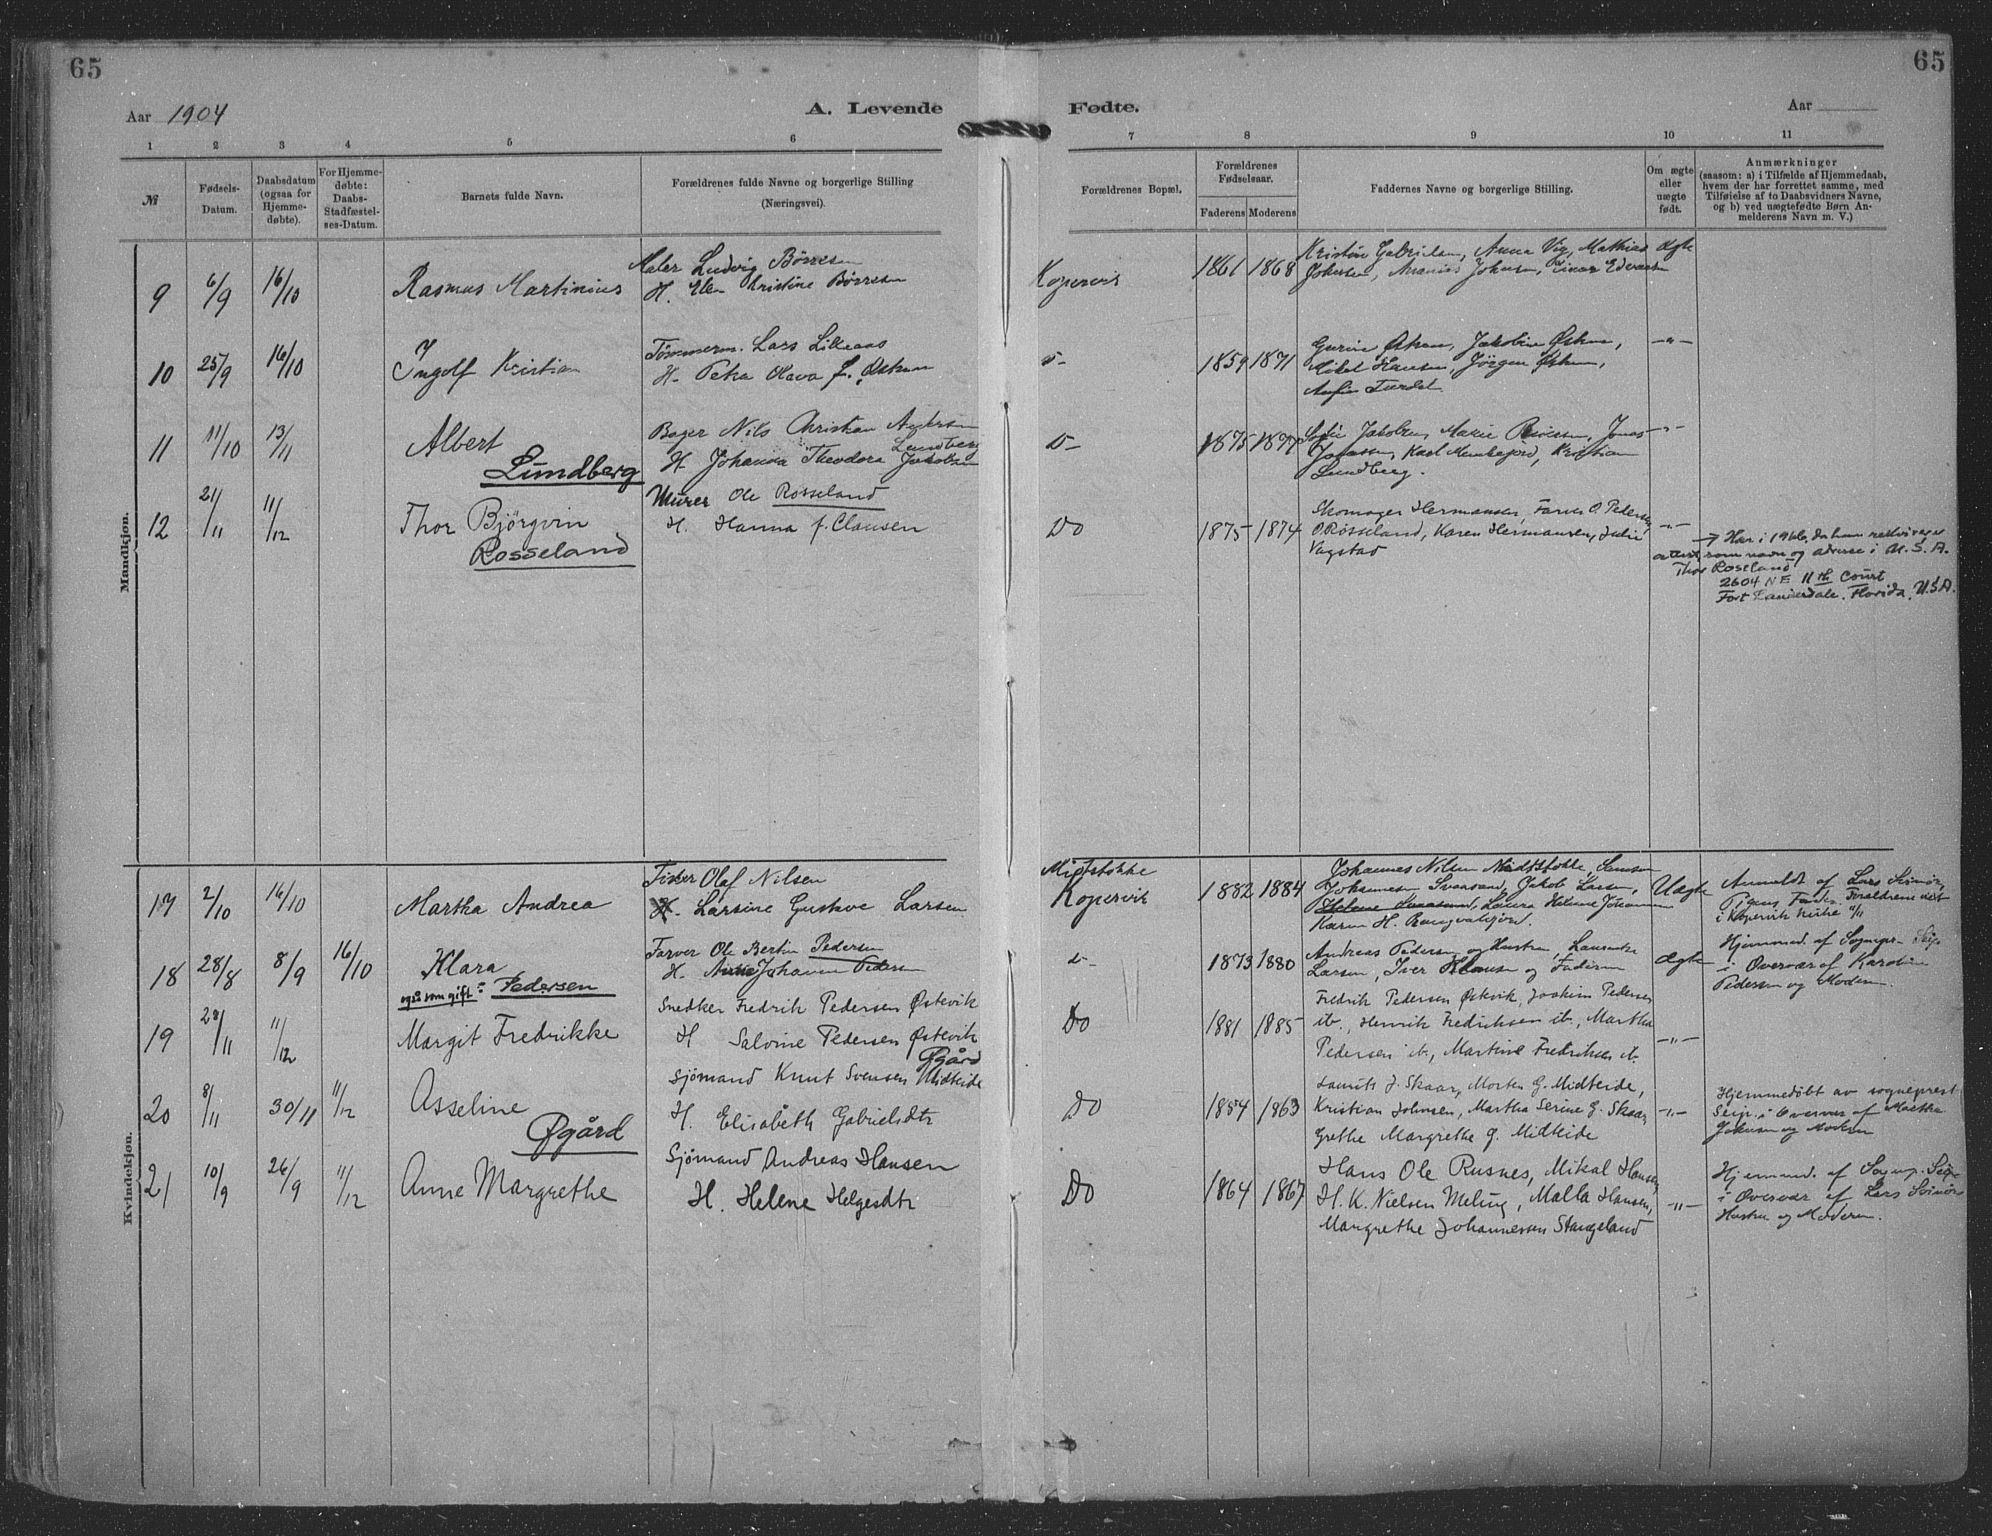 65
65
Aar 1904
A. Levende
Fødte.
Aar
1 2 3 4 5 6 7 8 9 10 11
№
Fødsels-
Datum.
Daabsdatum
(ogsaa for
Hjemme-
døbte).
For Hjemme-
døbte:
Daabs-
Stadfæstel-
ses-Datum.
Barnets fulde Navn.
Forældrenes fulde Navne og borgerlige Stilling
(Næringsvei).
Forældrenes Bopæl.
Forældrenes
Fødselsaar.
Faderens Moderens
Faddernes Navne og borgerlige Stilling.
Om ægte
eller
uægte
født.
Anmærkninger
(saasom: a) i Tilfælde af Hjemmedaab,
hvem der har forrettet samme, med
Tilføielse af to Daabsvidners Navne,
og b) ved uægtefødte Børn An-
melderens Navn m. V.)
Mandkjøn.
9 6/9 16/10
Rasmus Martinius
Maler Ludvig Børresen
H. Elen Christine Børresen
Kopervik
1861 1868
Gabrielsen, Anna Vig, Mathias
Johnsen, Ananias Johnsen, Einar
ægte
10 25/9 16/10
Ingolf Kristian
Tømmerm. Lars
H. Petra Olava f.
1859 1871
Jakobine
Mikal Hansen, Jørgen
-"-
11 11/10 13/11
Albert
Lundberg
Bager Nils Christian Andersen
Lundberg
H. Johanna Theodora Jakobsen
1875
Jakobsen, Marie Jonas
Karl Kristian
Lundberg.
-"-
12 21/11 11/12
Thor Bjørgvin
Rosseland
Murer Ole Rosseland
H. Hanna f. Clausen
Do
1875 1874
Skomager Hermansen, Farver O. Pedersen,
O. Rosseland, Karen Hermansen, Julie
Vagstad
-"-
Har i 1966, da han
som navn og adresse i U.S.A.
Thor Roseland
2604 NE 11th Court
Fort Lauderdale, Florida, U.S.A.
Kvindekjøn.
17 2/10 16/10
Martha Andrea
Fisker Olaf Nilsen
H. Larsine Gustave Larsen
Kopervik
1882 1884
Johannes Nilsen
Johannesen Jakob Larsen,
Helene Laura Helene Johannesen
Karen H.
Uægte
Anmeldt af Lars
Forældrene
i Kopervik Kirke
18 28/8 8/9 16/10
Klara
også som gift: Pedersen
Farver Ole Bertin Pedersen
H. Johanne Pedersen
1873 1880
Andreas Pedersen og Hustru,
Larsen, Iver og Faderen
ægte
Hjemmed. af Sognepr. Seip
i Overvær af Karoline
Pedersen og Moderen.
19 28/11 11/12
Margit Fredrikke
Snedker Fredrik Pedersen Østevik
H Salvine Pedersen Østevik
Do
1881 1885
Fredrik Pedersen Østevik, Joakim Pedersen
ib., Henrik Fredriksen ib., Martha
Pedersen ib., Martine Fredriksen ib.
-"-
20 8/11 30/11 11/12
Asseline
Øgård
Øgård
Sjømand Knut Svensen Midteide
H. Elisabeth Gabrielsdtr
Do
1854 1863
Laurits J. Skaar, Morten G. Midteide,
Kristian Johnsen, Martha Serine G. Skaar,
Grethe Margrethe G. Midteide
-"-
Hjemmedøbt av sogneprest
Seip i Overvær af Martha
og Moderen
21 10/9 26/9 11/12
Anne Margrethe
Sjømand Andreas Hansen
H. Helene Helgesdtr
Do
1864 1867
Hans Ole Rusnes, Mikal Hansen,
H. K. Nielsen Meling, Malla Hansen,
Margrethe Johannessen Stangeland
-"-
Hjemmed. af Sognep. Seip
i Overvær af Lars
Hustru og Moderen.